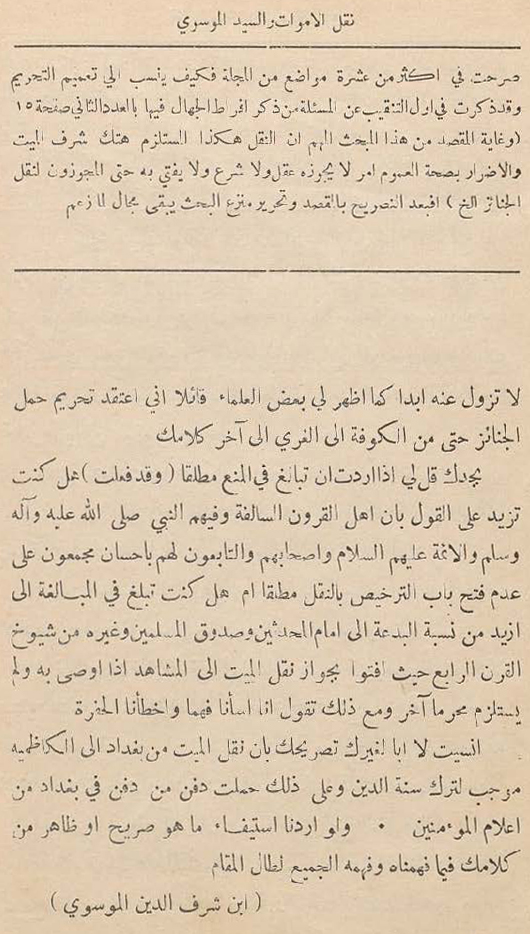 نقل الاموات والسيد الموسوي
صرحت في اكثر من عشرة مواضع من المجلة فكيف ينسب الي تعميم التحريم
وقد ذكرت في اول التنقيب عن المسئلة من ذكر افراط الجهال فيها بالعدد الثاني صفحة ١٥
(وغاية المقصد من هذا المبحث المهم ان النقل هكذا المستلزم هتك شرف الميت
والاضرار بصحة العموم امر لا يجوزه عقل ولا شرع ولا يفتي به حتى المجوزون لنقل
الجنائز الخ ) افبعد التصريح بالقصد وتحرير منزع البحث يبقى مجال لما زعم
لا تزول عنه ابدا كما اظهر لي بعض العلماء قائلا اني اعتقد تحريم حمل
الجنائز حتى من الكوفة الى الغري الى آخر كلامك
بجدك قل لي اذا اردت ان تبالغ في المنع مطلقا ( وقد فعلت ) هل كنت
تزيد على القول بان اهل القرون السالفة وفيهم النبي صلى الله عليه وآله
وسلم والائمة عليهم السلام واصحابهم والتابعون لهم باحسان مجمعون على
عدم فتح باب الترخيص بالنقل مطلقا ام هل كنت تبلغ في المبالغة الى
ازيد من نسبة البدعة الى امام المحدثين وصدوق المسلمين وغيره من شيوخ
القرن الرابع حيث افتوا بجواز نقل الميت الى المشاهد اذا اوصى به ولم
يستلزم محرما آخر ومع ذلك تقول انا اسأنا فهما واخطأنا الحفرة
انسيت لا ابا لغيرك تصريحك بان نقل الميت من بغداد الى الكاظميه
موجب لترك سنة الدين وعلى ذلك حملت دفن من دفن في بغداد من
اعلام المؤمنين • ولو اردنا استيفاء ما هو صريح او ظاهر من
كلامك فيما فهمناه وفهمه الجميع لطال المقام
( ابن شرف الدين الموسوي )